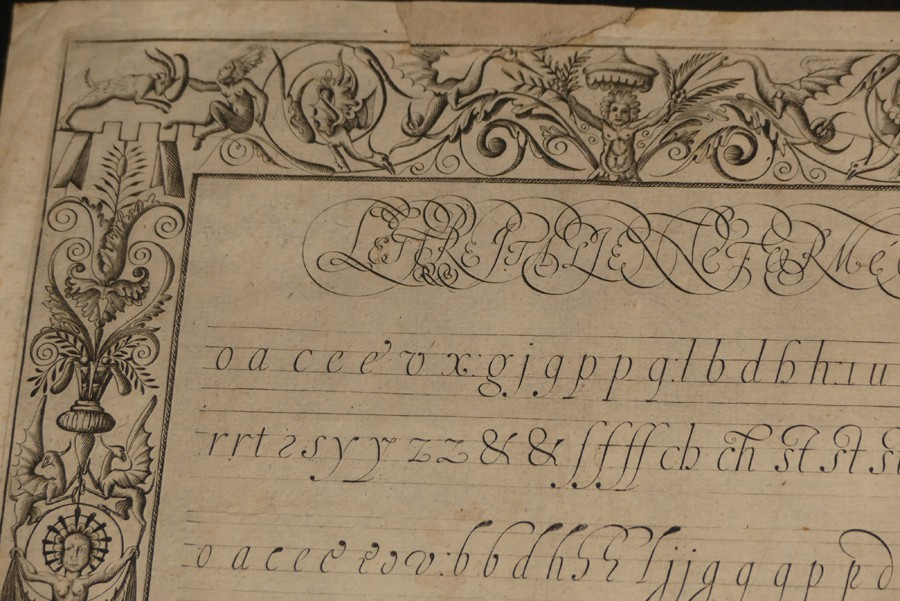 LETTRE ITALIENNE FORMÉ
o a c e e é v x: g j q p p q: l b d h h: ı u
r r t 2 s y y z z & & ſ f ſſ ch ch st st s
o a c e e e e ɔ v: b b d h h l j j g q q p p d